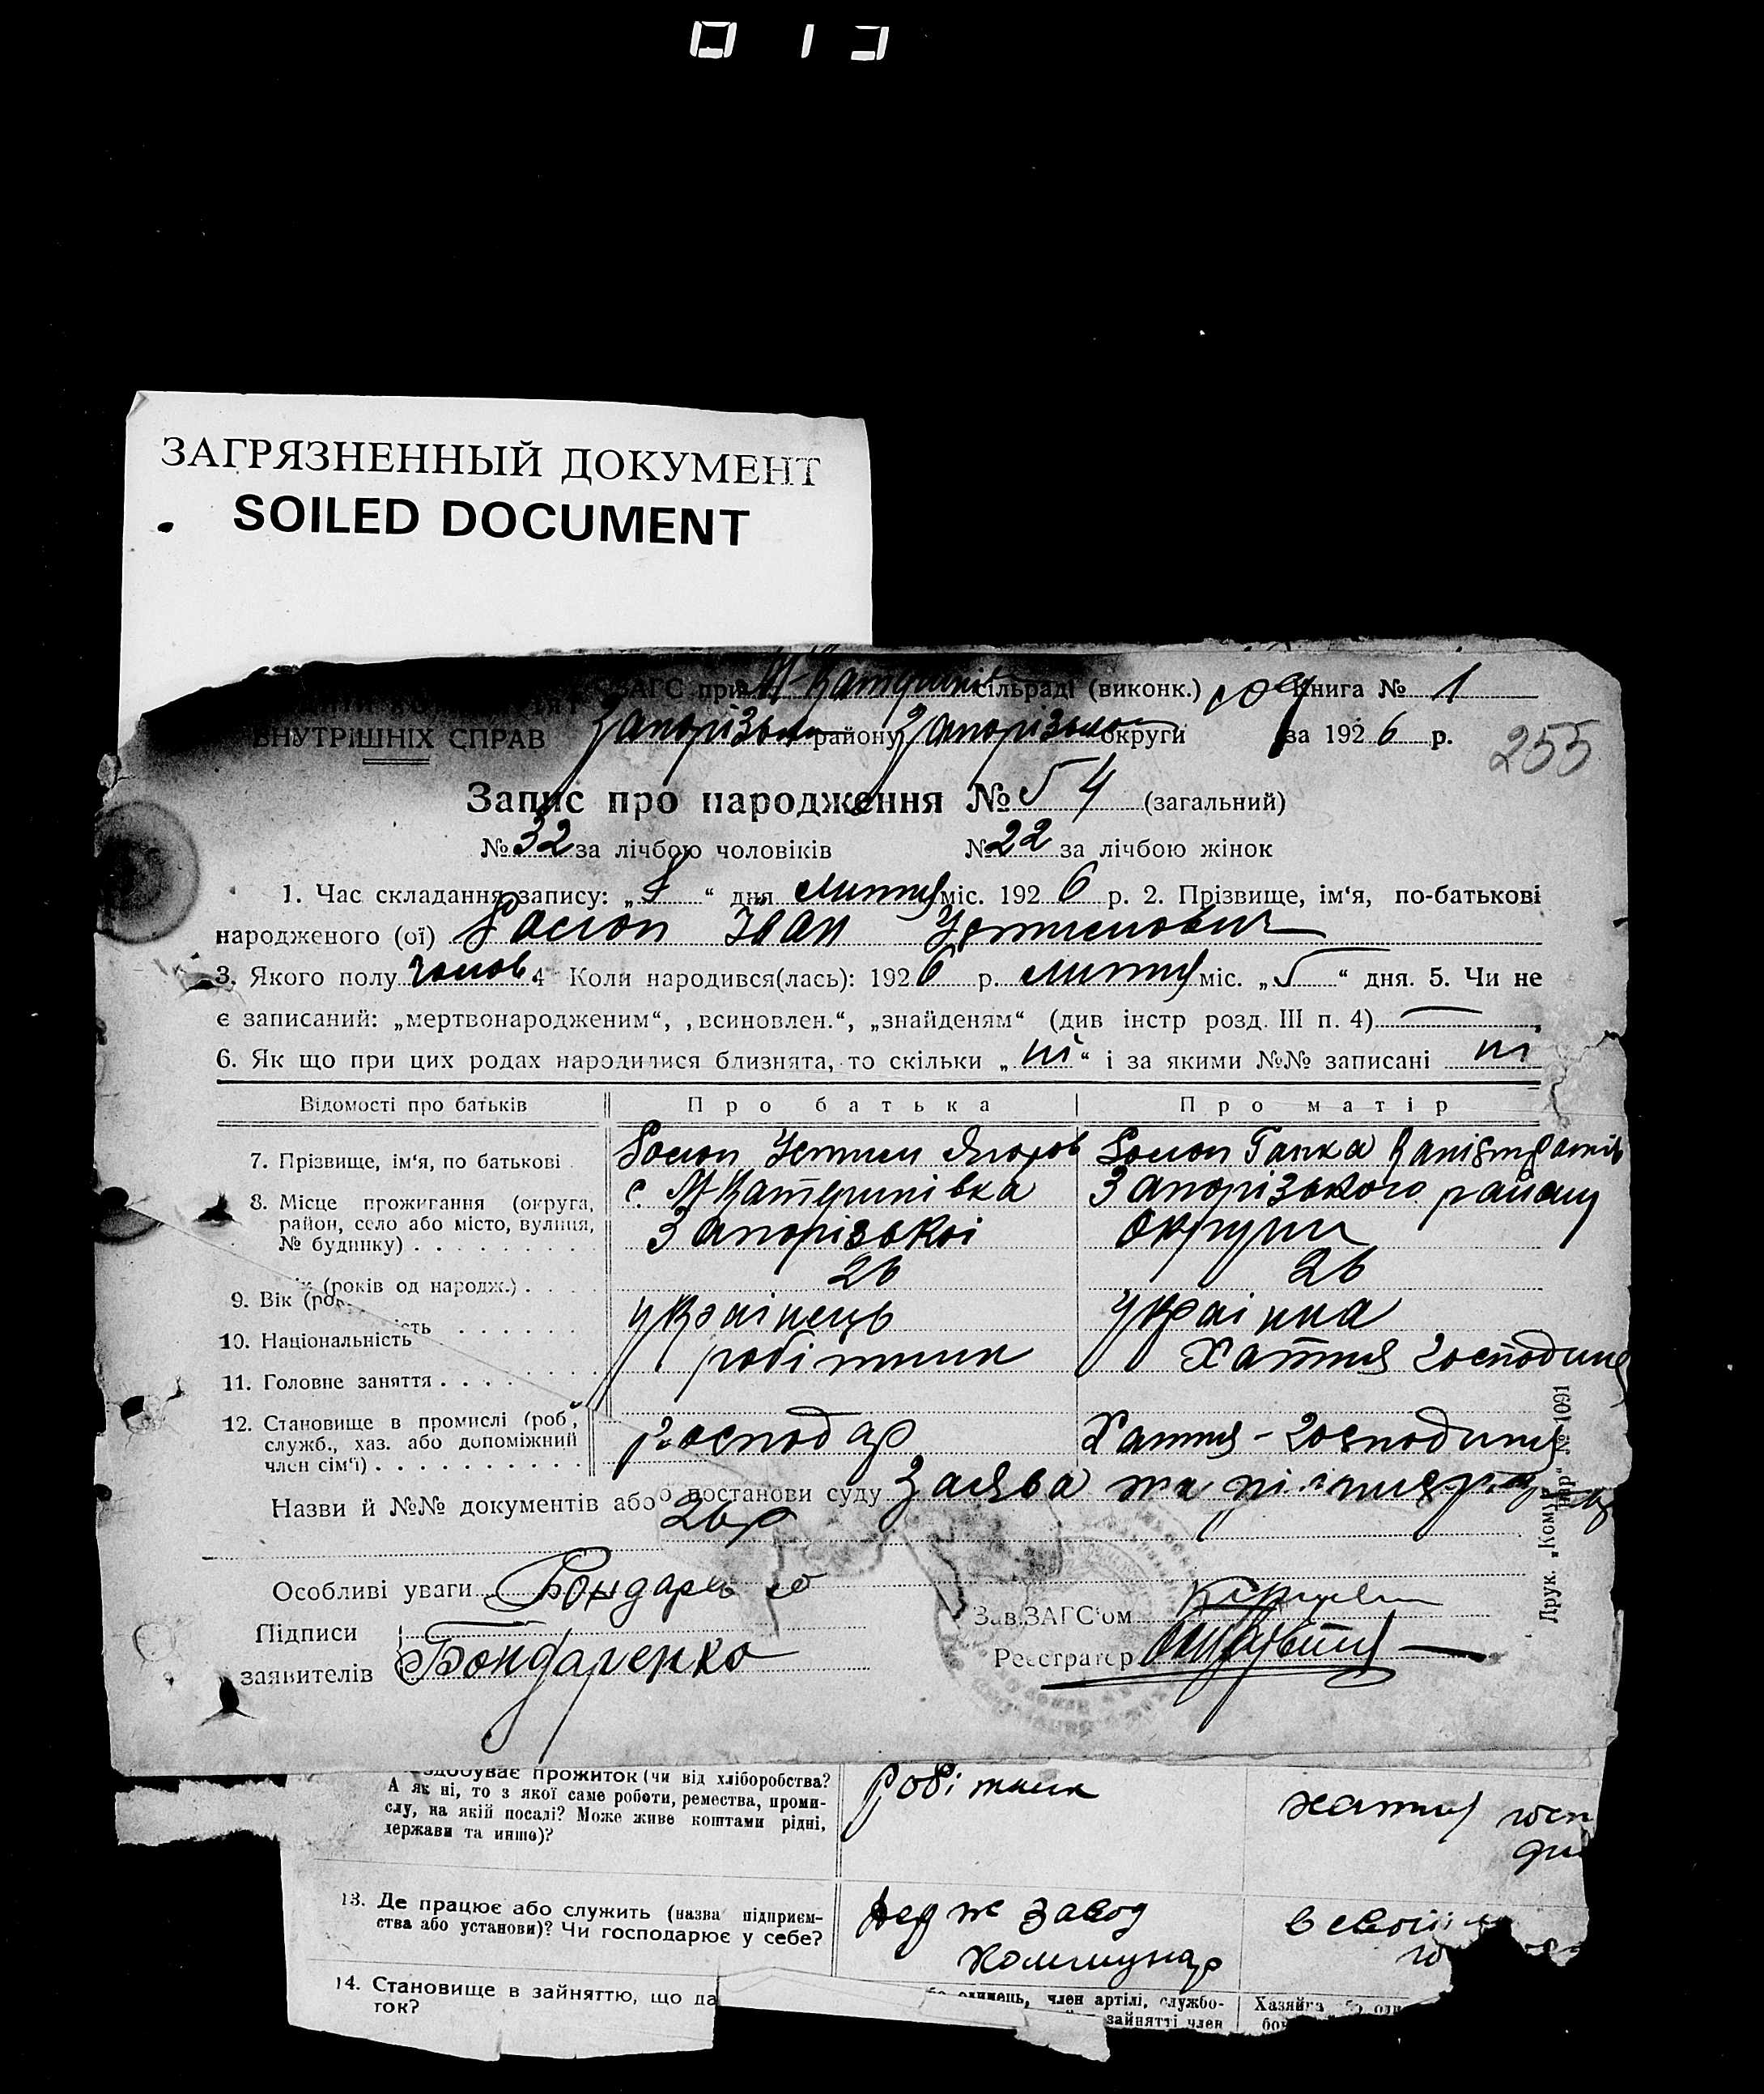 013
ЗАГРЯЗНЕННЫЙ ДОКУМЕНТ
SOILED DOCUMENT
ЗАГС при М-Катеринів сільраді (виконк.) Книга № 1
ВНУТРІШНІХ СПРАВ Запорізьк району Запорізької округи за 1926 р. 255
Запис про народження № 54 (загальний)
№ 32 за лічбою чоловіків № 22 за лічбою жінок
1. Час складання запису: „8“ дня липня міс. 1926 р. 2. Прізвище, ім‘я, по-батькові
народженого (ої) Іван Устимович
3. Якого полу чолов. 4 Коли народився(лась): 1926 р. липня міс. „5“ дня. 5. Чи не
є записаний: „мертвонародженим“, „всиновлен.“, „знайденям“ (див інстр розд. III п. 4)
6. Як що при цих родах народилися близнята, то скільки „ні“ і за якими №№ записані ні
Відомості про батьків Про батька Про матір
7. Прізвище, ім‘я, по батькові Устим Ганка
8. Місце прожигання (округа, с. М-Катеринівка Запорізького району
район, село або місто, вулиця, Запорізької округи
№ будинку)
9. Вік (років од народж.) 26 26
10. Національність українець українка
11. Головне заняття робітник Хатня господиня
12. Становище в промислі (роб., господар Хатня-господиня
служб., хаз. або допоміжний
член сім‘ї)
Назви й №№ документів або постанови суду Заява та
Особливі уваги
Підписи
заявителів Бондаренко
Зав. ЗАГС‘ом
Реєстратор
Друк. „Комунар“ № 1091
здобуває прожиток (чи від хліборобства? робітник хатня госп
А як ні, то з якої саме роботи, ремества, проми- ди
слу, на якій посаді? Може живе коштами рідні,
держави та инше)?
13. Де працює або служить (назва підприєм- завод в свой
ства або установи)? Чи господарює у себе? Коммунар
14. Становище в зайняттю, що да
ток?
одинець, член артілі, службо-
зайнятті член
Хазяйка